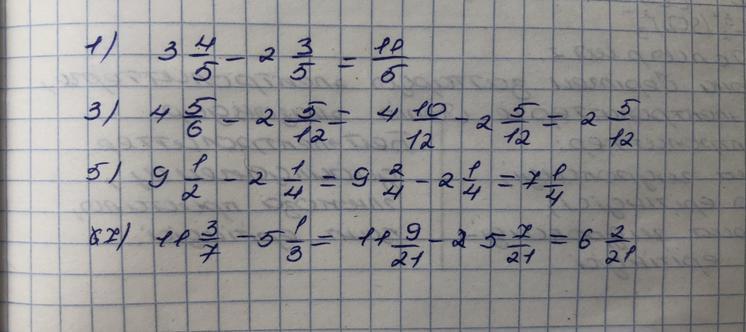 1) 3 4/5 - 2 3/5 = 11/5
3) 4 5/6 - 2 5/12 = 4 10/12 - 2 5/12 = 2 5/12
5) 9 1/2 - 2 1/4 = 9 2/4 - 2 1/4 = 7 1/4
7) 11 3/7 - 5 1/3 = 11 9/21 - 5 7/21 = 6 2/21